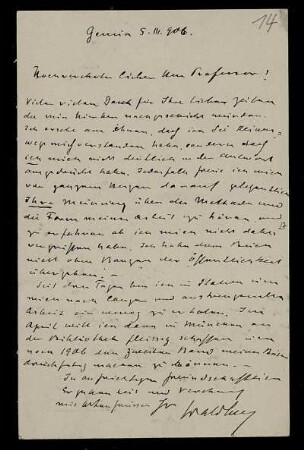 14
Genua 5. III. 906.
Hochverehrter lieber Herr Professor!
Vielen vielen Dank für Ihre lieben Zeilen
die mir hierher nachgeschickt wurden.
Ich ersehe aus ihnen, daß Sie keines-
wegs mißverstanden haben, sondern daß
ich mich nicht deutlich in der Antwort
ausgedrückt habe. Jedenfalls freue ich mich
von ganzem Herzen darauf gelegentlich
Ihre Meinung über die Methode und
die Form meiner Arbeit zu hören und
zu erfahren ob ich mich nicht dabei
vergriffen habe. Ich habe dem Reimen
nicht ohne Bangen der Öffentlichkeit
übergeben.
Seit drei Tagen bin ich in Italien um
mich nach langer und anstrengender
Arbeit ein wenig zu erholen. Im
April will ich dann in München an
der Bibliothek fleißig schaffen um
noch 1906 den zweiten Band meines
druckfertig machen zu können.
In aufrichtiger freundschaftlicher
Ergebenheit und Verehrung
mit
Ihr Waldberg